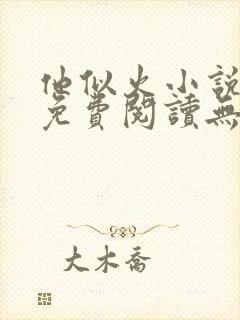 他似火小説
免費閱讀無
大木喬